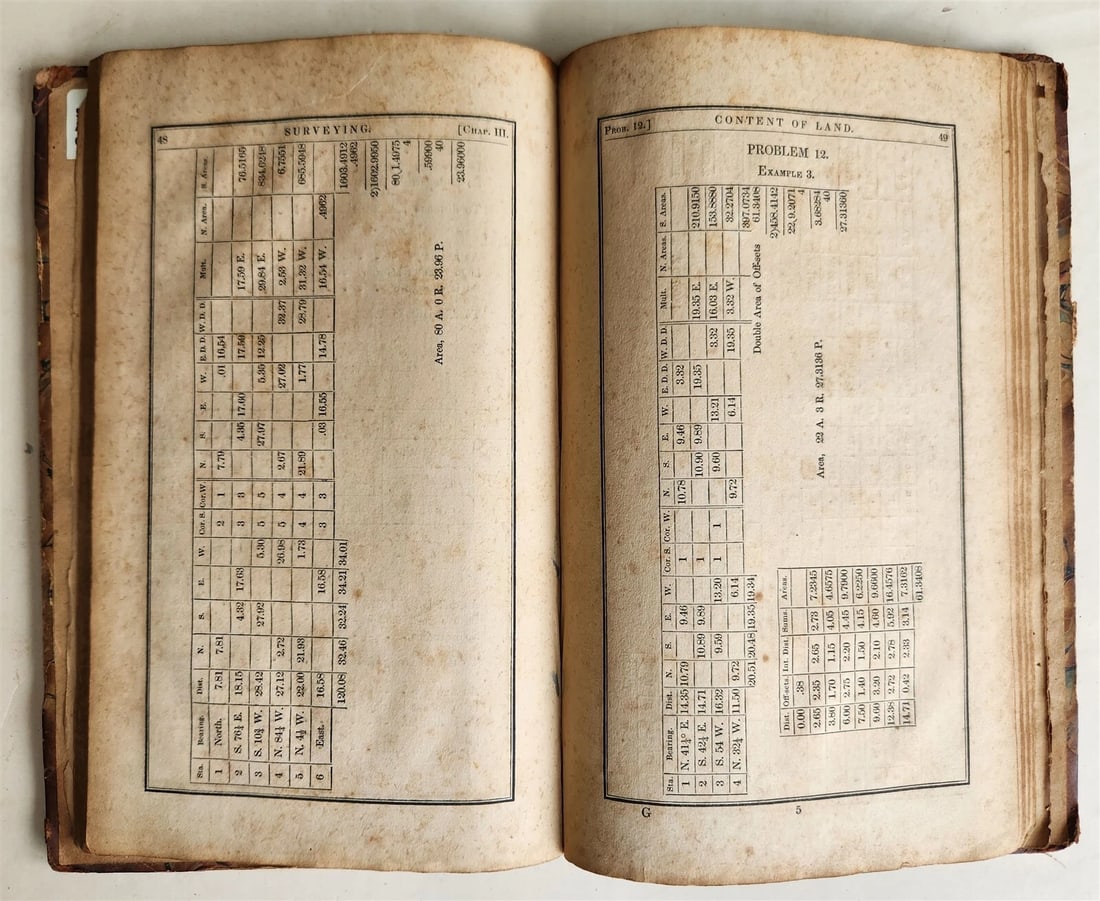 48 SURVEYING. [CHAP. III.
Sta. Bearing. Dist. N. S. E. W. Cor. S. Cor. W. N. S. E. W. E. D. D. W. D. D. Mult. N. Area. S. Area.
1 North. 7.81 7.81 2 1 7.79 .01 16.54
2 S. 76¼ E. 18.15 4.32 17.63 3 3 4.35 17.60 17.59 17.59 E. 76.5165
3 S. 10¾ W. 28.42 27.92 5.30 5 5 27.97 5.35 12.25 29.84 E. 834.6248
4 N. 84¼ W. 27.12 2.72 26.98 5 4 2.67 27.02 32.37 2.53 W. 6.7551
5 N. 4½ W. 22.00 21.93 1.73 4 4 21.89 1.77 28.79 31.32 W. 685.5948
6 East. 16.58 16.58 3 3 .03 16.55 14.78 16.54 W. .4962
120.08 32.46 32.24 34.21 34.01 1603.4912
.4962
2)1602.9950
80,1.4975
4
.59900
40
23.96000
Area, 80 A. 0 R. 23.96 P.
PROB. 12.] CONTENT OF LAND. 49
PROBLEM 12.
EXAMPLE 3.
Sta. Bearing. Dist. N. S. E. W. Cor. S. Cor. W. N. S. E. W. E. D. D. W. D. D. Mult. N. Areas. S. Areas.
1 N. 41¼° E. 14.35 10.79 9.46 1 10.78 9.46 3.32
2 S. 42¼ E. 14.71 10.89 9.89 1 10.90 9.89 19.35 19.35 E. 210.9150
3 S. 54 W. 16.32 9.59 13.20 1 1 9.60 13.21 3.32 16.03 E. 153.8880
4 N. 32¼ W. 11.50 9.72 6.14 9.72 6.14 19.35 3.32 W. 32.2704
20.51 20.48 19.35 19.34 397.0734
Double Area of Off-sets 61.3408
2)458.4142
22,9.2071
4
3.68284
40
27.31360
Dist. Off-sets. Int. Dist. Sums. Areas.
0.00 .38
2.65 2.35 2.65 2.73 7.2345
3.80 1.70 1.15 4.05 4.6575
6.00 2.75 2.20 4.45 9.7900
7.50 1.40 1.50 4.15 6.2250
9.60 3.20 2.10 4.60 9.6600
12.38 2.72 2.78 5.92 16.4576
14.71 0.42 2.33 3.14 7.3162
61.3408
Area, 22 A. 3 R. 27.3136 P.
G 5